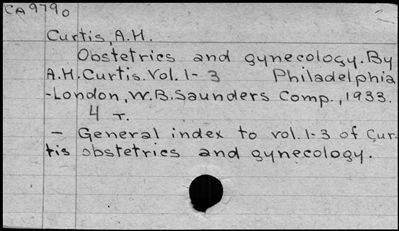 CA9790
Curtis, A.H.
Obstetrics and gynecology. By
A.H. Curtis. Vol. 1-3 Philadelphia
-London, W.B. Saunders Comp., 1933.
4 т.
- General index to vol. 1-3 of Cur-
tis obstetrics and gynecology.